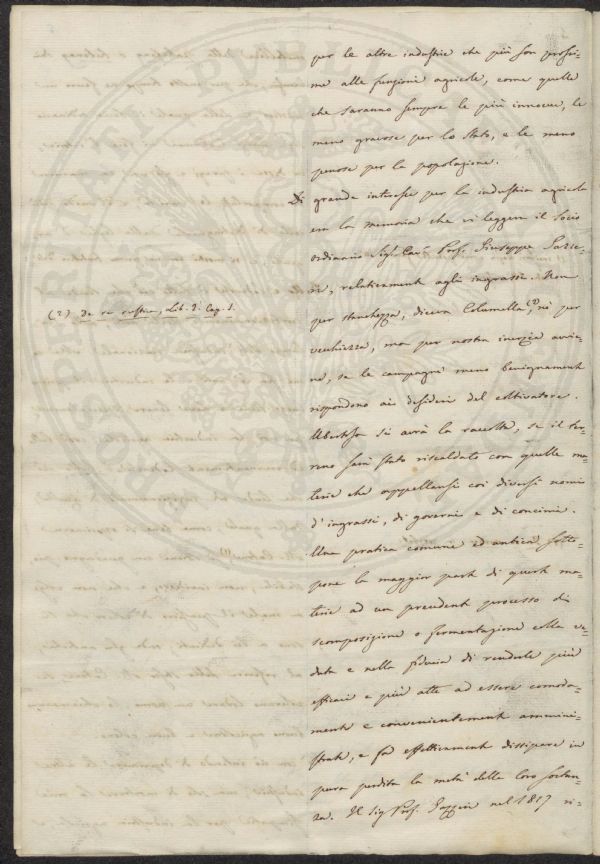 per le altre industrie che più son prossi-
me alle funzioni agricole, come quelle
che saranno sempre le più innocue, le
meno gravose per lo Stato, e le meno
penose per la popolazione.
Di grande interesse per la industria agricola
era la memoria che vi leggeva il Socio
ordinario Sig. Cav. Prof. Giuseppe Gazze-
ri, relativamente agli ingrassi. Non
per stanchezza, diceva Columella (2), nè per
vecchiezza, ma per nostra inerzia avvie-
ne, se le campagne meno benignamente
rispondono ai desideri del coltivatore.
Ubertosa si avrà la raccolta, se il ter-
reno sarà stato riscaldato con quelle ma-
terie che appellansi coi diversi nomi
d'ingrassi, di governi e di concimi.
Una pratica comune ed antica sotto-
pone la maggior parte di queste ma-
terie ad un precedente processo di
scomposizione o fermentazione colla ve-
duta e nella fiducia di renderle più
efficaci e più atte ad essere comoda-
mente e convenientemente ammini-
strate, e fa effettivamente dissipare in
pura perdita la metà delle loro sostan-
za. Il Sig. Prof. Gazzeri nel 1817 ri-
(2) De re rustica, Lib. 2. Cap. 1.
PROSPERITATI PUB